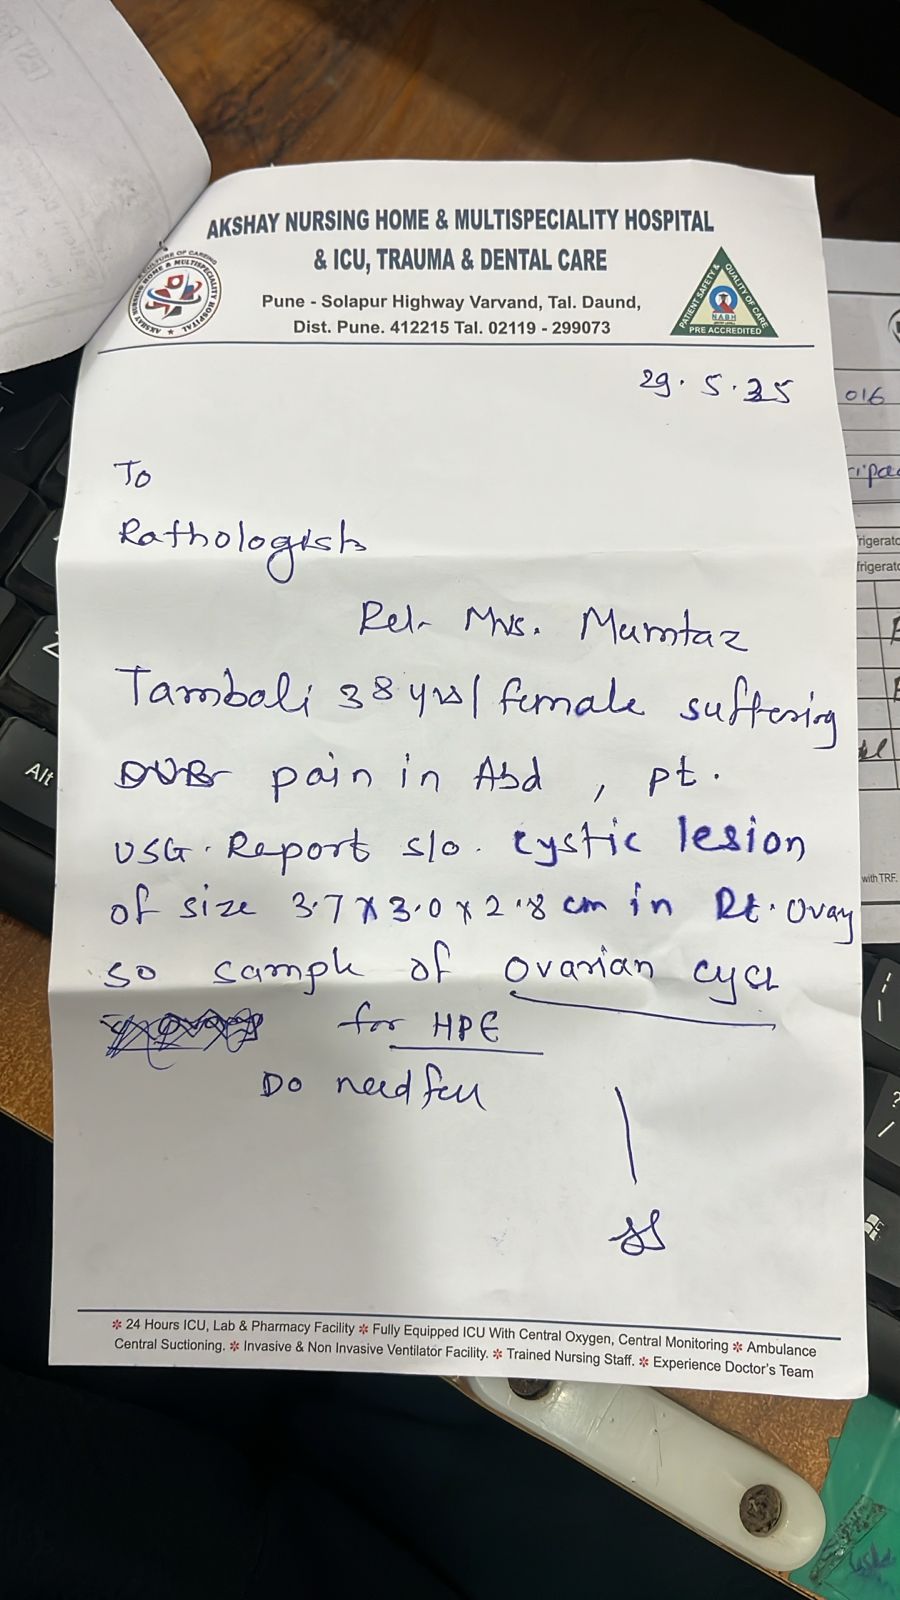 AKSHAY NURSING HOME & MULTISPECIALITY HOSPITAL
& ICU, TRAUMA & DENTAL CARE
Pune - Solapur Highway Varvand, Tal. Daund,
Dist. Pune. 412215 Tal. 02119 - 299073
AKSHAY NURSING HOME & MULTISPECIALITY HOSPITAL
PATIENT SAFETY & QUALITY OF CARE
NABH
PRE ACCREDITED
29.5.25
To
Pathologist
Ref- Mrs. Mumtaz
Tamboli 38 yrs/female suffering
pain in Abd, pt.
USG. Report s/o. cystic lesion
of size 3.7 x 3.0 x 2.8 cm in Rt. Ovay
so sample of Ovarian cyst
for HPE
Do needful
* 24 Hours ICU, Lab & Pharmacy Facility * Fully Equipped ICU With Central Oxygen, Central Monitoring * Ambulance
Central Suctioning. * Invasive & Non Invasive Ventilator Facility. * Trained Nursing Staff. * Experience Doctor's Team
016
frigerato
frigerato
with TRF.
Alt
Z